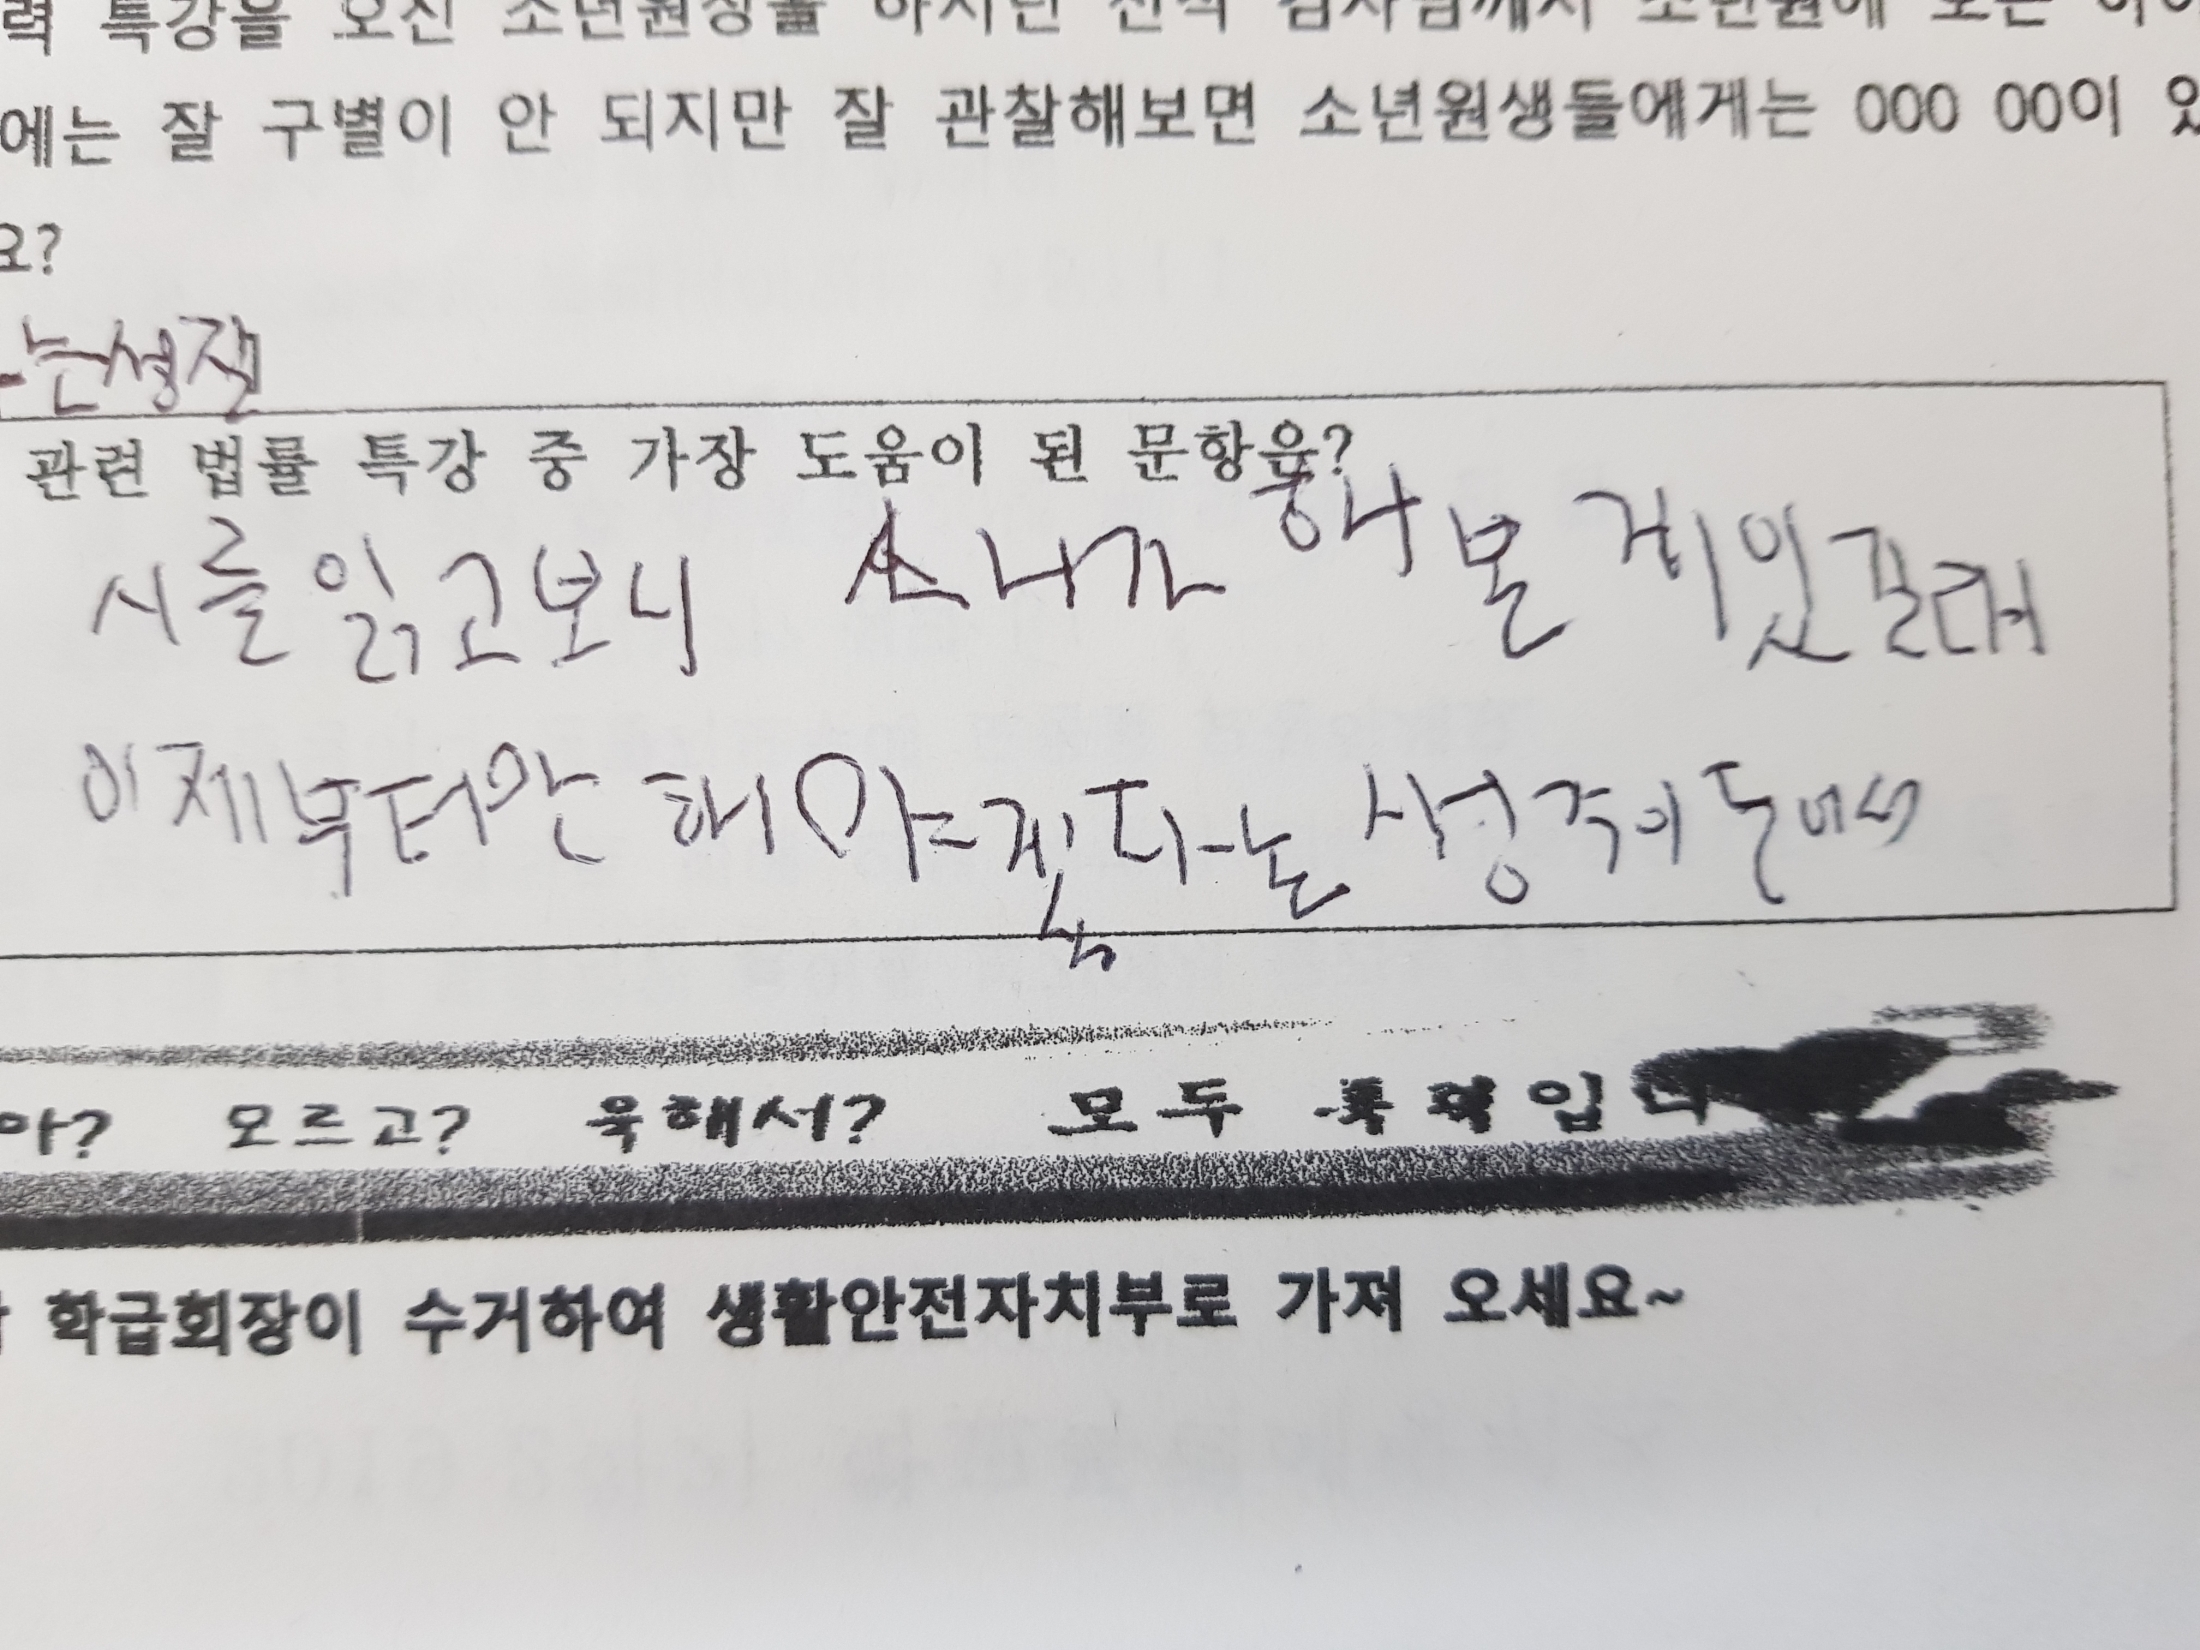 력 특강을 오신 소년원장을 하시던 전직 검사님께서 소년원에 오는
에는 잘 구별이 안 되지만 잘 관찰해보면 소년원생들에게는 000 00이
요?
는성질
관련 법률 특강 중 가장 도움이 된 문항은?
시를 읽고보니 내가 해 볼 게있길래
이제부터안 해야겠다는 생각이 들어서
아? 모르고? 욱해서? 모두 폭력입니
학급회장이 수거하여 생활안전자치부로 가져 오세요~